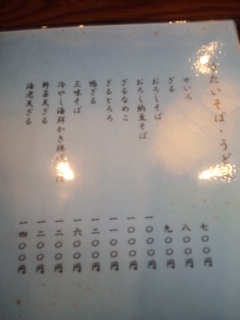 たいそば・うど
せいろ 七〇〇円
ざる 八〇〇円
おろしそば 九〇〇円
おろし納豆そば 一〇〇〇円
ざるなめこ 一〇〇〇円
ざるとろろ 一一〇〇円
鴨ざる 一二〇〇円
三味そば 一六〇〇円
冷やし海鮮かき揚げ 一二〇〇円
野菜天ざる 一二〇〇円
海老天ざる 一四〇〇円